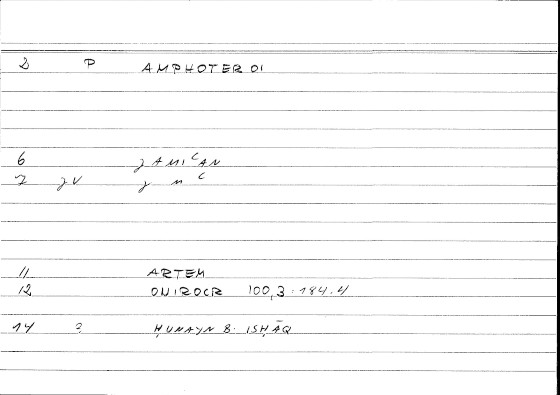 2 P AMPHOTEROI
6 ǧAMIʿAN
7 ǧV ǧ m ʿ
11 ARTEM
12 ONIROCR 100,3 · 184.4
14 ? ḤUNAYN B. ISḤĀQ